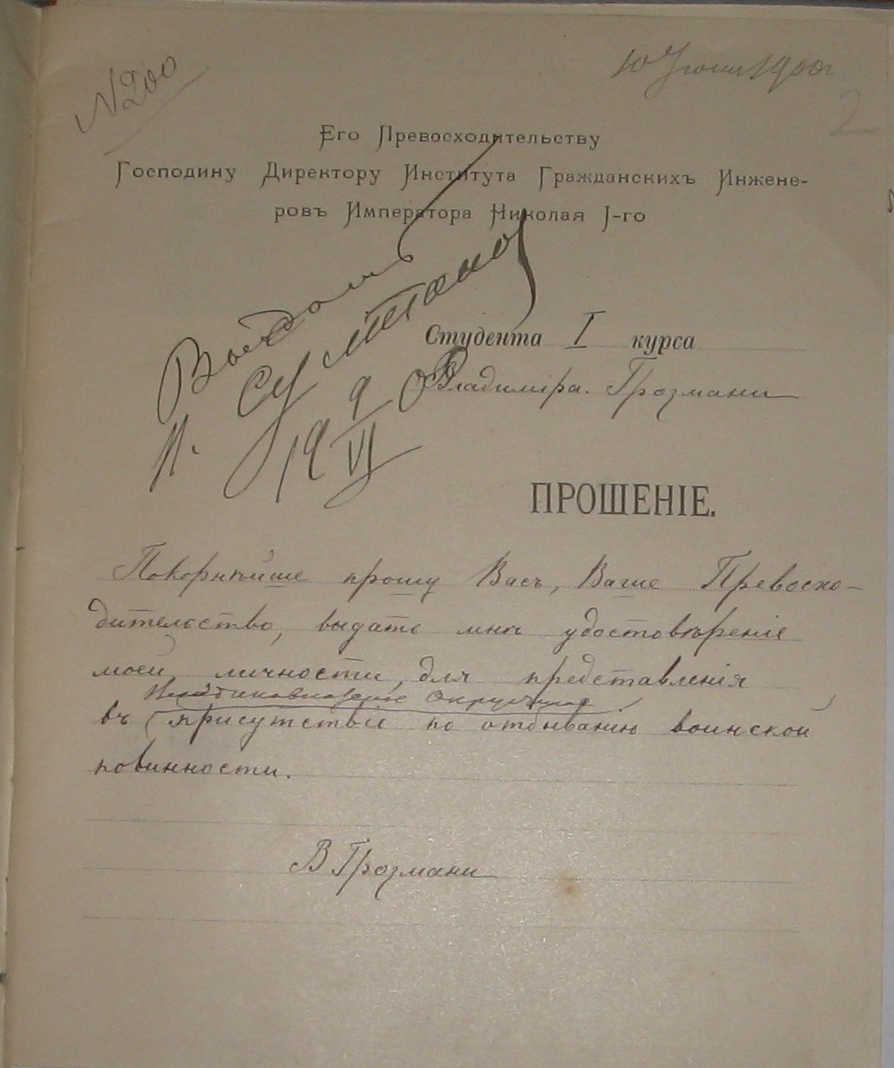 N 200
10 Юни 1900 г
2
Его Превосходительству
Господину Директору Института Гражданскихъ Инжене-
ровъ Императора Николая I-го
Студента I курса
Владиміра. Грозмани
19 9/VI 0
ПРОШЕНІЕ.
Покорнѣйше прошу Васъ, Ваше Превосхо-
дительство, выдать мнѣ удостовѣреніе
моей личности, для представленія
Окружное
въ присутствіе по отбыванію воинской
повинности.
В Грозмани